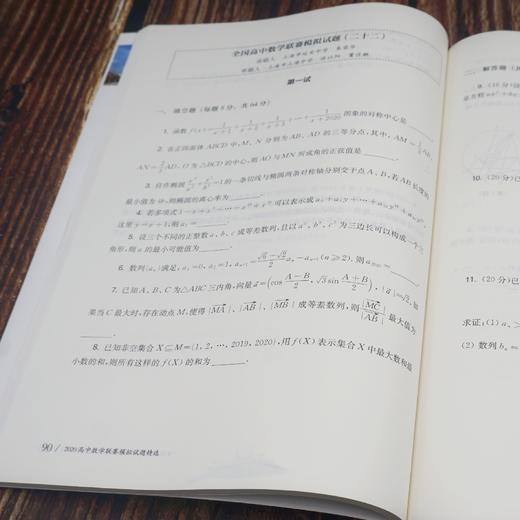 全国高中数学联赛模拟试题（二十二）
第一试
一、填空题（每题8分，共64分）
1. 函数 f(x)=1/(x+1)+1/(x+2)+1/(x+3)+…+1/(x+2020) 图象的对称中心是
2. 在正四面体ABCD中，M、N分别为AB、AD的三等分点，其中，AM=1/3 AB，
AN=2/3 AD，O为△BCD的中心，则AO与MN所成角的正弦值是
3. 自作椭圆x²/a²+y²/b²=1的一条切线与椭圆两条对称轴分别交于点A、B，若AB长度的
，则椭圆的离心率为
4. 若多项式
可以表示成a₀+a₁y+…
这里y=x+1，则a₂=
5. 设三个不同的正整数a、b、c成等差数列，且以a²、b²、c²为三边长可以构成一个三
角形，则a的最小可能值为
6. 数列{aₙ}满足，a₁=0，a₂=1，aₙ₊₁=
(n≥2)，则a₂₀₂₀=
7. 已知A、B、C为△ABC三内角，向量a=(cos (A-B)/2, √3 sin (A+B)/2)，|a|=√2，如
果当C最大时，存在动点M，使得|MA|、|AB|、|MB|成等差数列，则|MC|/|AB|最大值为
8. 已知非空集合X⊆M={1，2，…，2019，2020}，用f(X)表示集合X中最大数和最
小数的和，则所有这样的f(X)的和为
90 / 2020高中数学联赛模拟试题精选
二、解答题
9. (16分)
10. (20分)
11. (20分)已
求证：(1) aₙ>
(2) 数列bₙ=